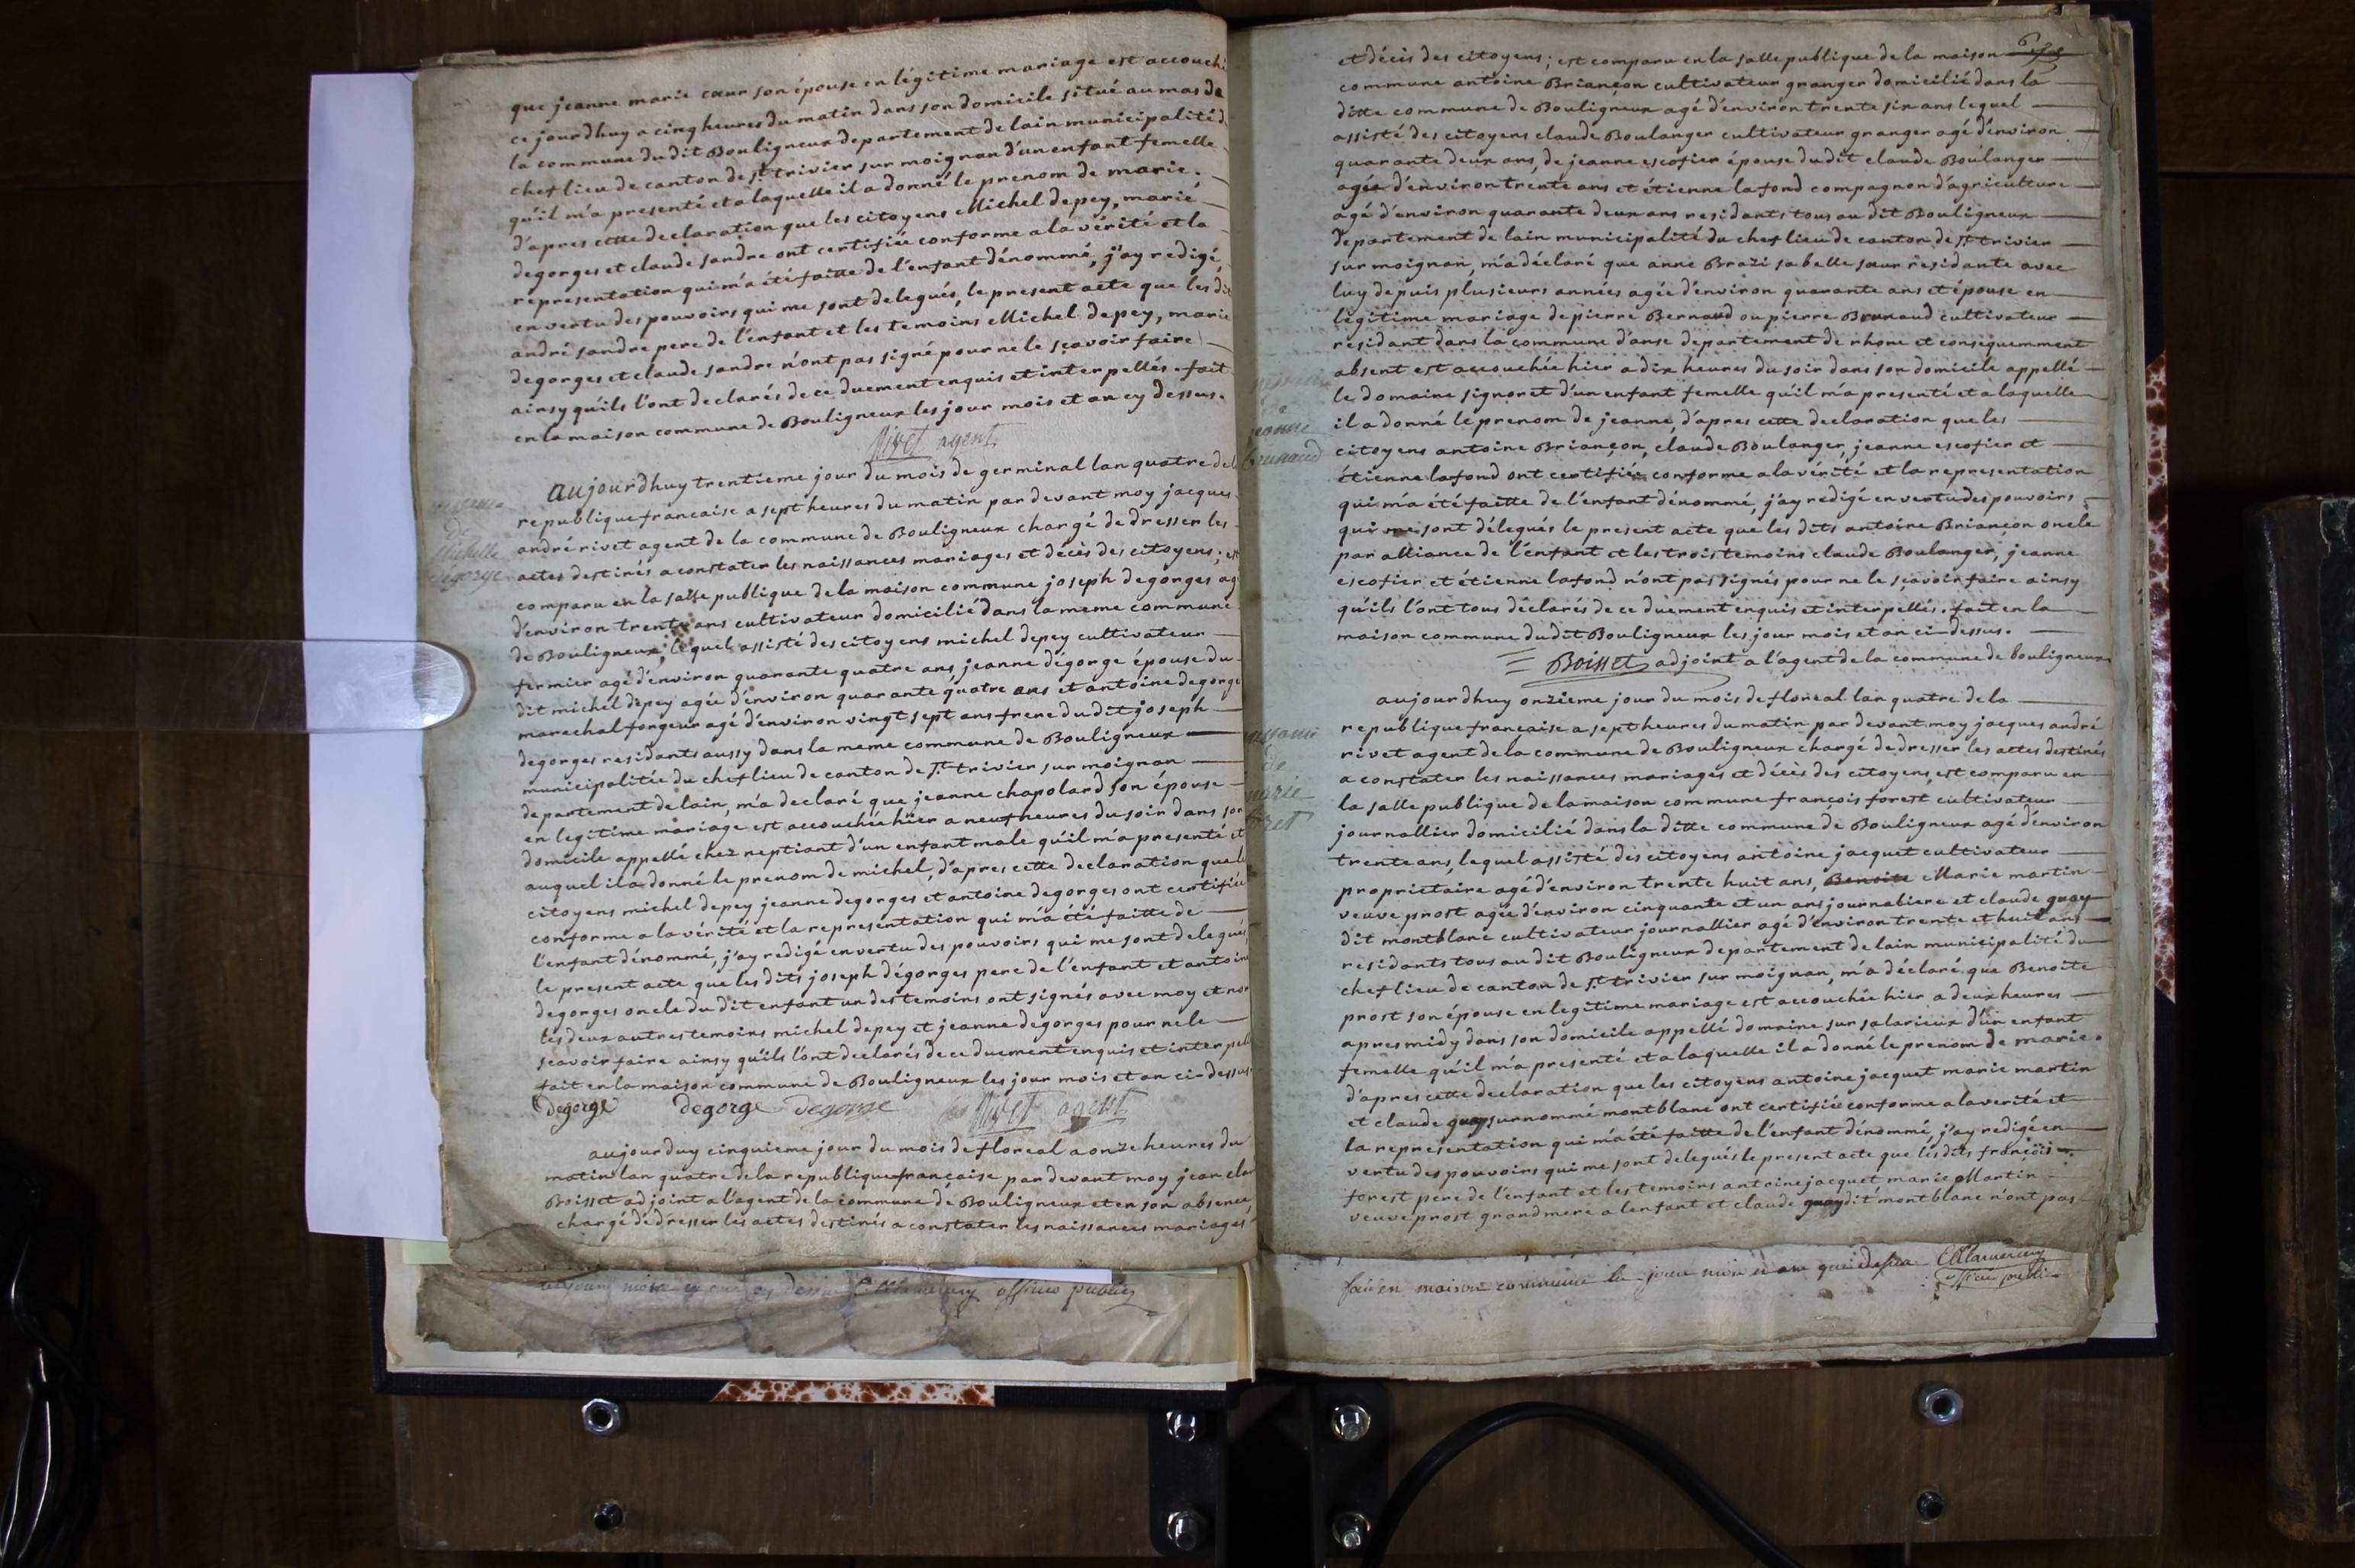 que jeanne marie cœur son épouse en légitime mariage est accouché
ce jourdhuy a cinq heures du matin dans son domicile situé au mas de
la commune du dit Bouligneux departement de lain municipalité d
chef lieu de canton de st trivier sur moignan d'un enfant femelle
qu'il m'a presenté et a laquelle il a donné le prenom de marie.
d'apres cette declaration que les citoyens Michel depey, marie
degorges et claude sandre ont certifiée conforme a la vérité et la
representation qui m'a été faitte de l'enfant dénommé, j'ay redigé,
en vertu des pouvoirs qui me sont delegués, le present acte que les d
andré sandre pere de l'enfant et les temoins Michel depey, marie
degorges et claude sandre n'ont pas signé pour ne le sçavoir faire
ainsy qu'ils l'ont declarés de ce duement enquis et interpellés. fait
en la maison commune de Bouligneux les jour mois et an cy dessus.
Rivet agent
de
Michelle
degorge
aujourdhuy trentieme jour du mois de germinal lan quatre de la
republique francaise a sept heures du matin par devant moy jacques
andré rivet agent de la commune de Bouligneux chargé de dresser les
actes destinés a constater les naissances mariages et décès des citoyens; est
comparu en la salle publique de la maison commune joseph degorges ag
d'environ trente ans cultivateur domicilié dans la meme commune
de Bouligneux, lequel assisté des citoyens michel depey cultivateur
fermier agé d'environ quarante quatre ans, jeanne dégorge épouse du
dit michel depey agée d'environ quarante quatre ans et antoine degorge
marechal forgeur agé d'environ vingt sept ans frere du dit joseph
degorges residants aussy dans la meme commune de Bouligneux
municipalitée du chef lieu de canton de st trivier sur moignan
departement de lain, m'a declaré que jeanne chapolard son épouse
en legitime mariage est accouchée hier a neuf heures du soir dans son
domicile appellé chez neptiant d'un enfant male qu'il m'a presenté et
auquel il a donné le prenom de michel, d'apres cette declaration que le
citoyens michel depey jeanne degorges et antoine degorges ont certifiée
conforme a la vérité et la representation qui m'a été faitte de
l'enfant dénommé, j'ay redigé en vertu des pouvoirs qui me sont delegués,
le present acte que les dits joseph dégorges pere de l'enfant et antoine
degorges oncle du dit enfant un des temoins ont signés avec moy et non
les deux autres temoins michel depey et jeanne degorges pour ne le
scavoir faire ainsy qu'ils l'ont declarés de ce duement enquis et interpell
fait en la maison commune de Bouligneux les jour mois et an ci-dessus
Degorge degorge Degorge Rivet agent
aujourduy cinquieme jour du mois de floreal a onze heures du
matin lan quatre de la republique française par devant moy jean cla
Boisset adjoint a l'agent de la commune de Bouligneux et en son absence,
chargé de dresser les actes destinés a constater les naissances mariages
mois et an officier public
et décès des citoyens; est comparu en la salle publique de la maison
commune antoine Briançon cultivateur granger domicilié dans la
ditte commune de Bouligneux agé d'environ trente six ans lequel
assisté des citoyens claude Boulanger cultivateur granger agé d'environ
quarante deux ans, de jeanne escofier épouse du dit claude Boulanger
agée d'environ trente ans et étienne lafond compagnon d'agriculture
agé d'environ quarante deux ans residants tous au dit Bouligneux
departement de lain municipalité du chef lieu de canton de st trivier
sur moignan, m'a déclaré que anne Brazi sa belle sœur residante avec
luy depuis plusieurs années agée d'environ quarante ans et épouse en
légitime mariage de pierre Bernaud ou pierre Brunaud cultivateur
residant dans la commune d'anse departement de rhone et consequemment
absent est accouchée hier a dix heures du soir dans son domicile appellé
le domaine signoret d'un enfant femelle qu'il m'a presenté et a laquelle
il a donné le prenom de jeanne, d'apres cette declaration que les
citoyens antoine Briançon, claude Boulanger, jeanne escofier et
étienne lafond ont certifiée conforme a la vérité et la representation
qui m'a été faitte de l'enfant dénommé, j'ay rédigé en vertu des pouvoirs
qui me sont délegués le present acte que les dits antoine Briançon oncle
par alliance de l'enfant et les trois temoins claude Boulanger, jeanne
escofier et étienne lafond n'ont pas signés pour ne le sçavoir faire ainsy
qu'ils l'ont tous déclarés de ce duement enquis et interpellés. fait en la
maison commune du dit Bouligneux les jour mois et an ci-dessus.
Boisset adjoint a l'agent de la commune de bouligneux
de
jeanne
brunaud
aujourdhuy onzieme jour du mois de floreal lan quatre de la
republique française a sept heures du matin par devant moy jacques andré
rivet agent de la commune de Bouligneux chargé de dresser les actes destinés
a constater les naissances mariages et décès des citoyens, est comparu en
la salle publique de la maison commune françois forest cultivateur
journallier domicilié dans la ditte commune de Bouligneux agé d'environ
trente ans, lequel assisté des citoyens antoine jacquet cultivateur
proprietaire agé d'environ trente huit ans, Benoite Marie martin
veuve prost agée d'environ cinquante et un ans journaliere et claude guay
dit montblanc cultivateur journallier agé d'environ trente et huit ans
residants tous au dit Bouligneux departement de lain municipalité du
chef lieu de canton de st trivier sur moignan, m'a déclaré que Benoite
prost son épouse en legitime mariage est accouchée hier a deux heures
apres midy dans son domicile appellé domaine sur salarieux d'un enfant
femelle qu'il m'a presenté et a laquelle il a donné le prenom de marie.
d'apres cette declaration que les citoyens antoine jacquet marie martin
et claude guay surnommé montblanc ont certifiée conforme a la verité et
la representation qui m'a été faitte de l'enfant dénommé, j'ay redigé en
vertu des pouvoirs qui me sont delegués le present acte que les dits françois
forest pere de l'enfant et les temoins antoine jacquet marie Martin
veuve prost grandmere a l'enfant et claude guay dit montblanc n'ont pas
de
marie
foret
fait en maison commune les jour mois et an que dessus
officier public